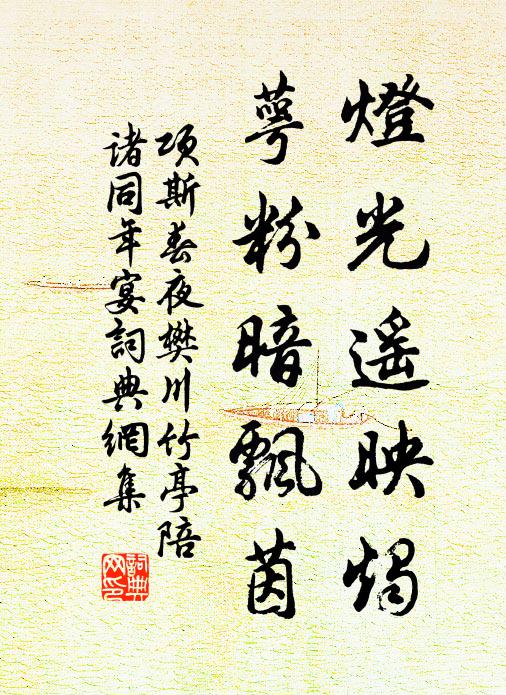 燈光遥映燭
萼粉暗飄茵
項斯春夜樊川竹亭陪
诸同年宴詞典網集
詞典网印